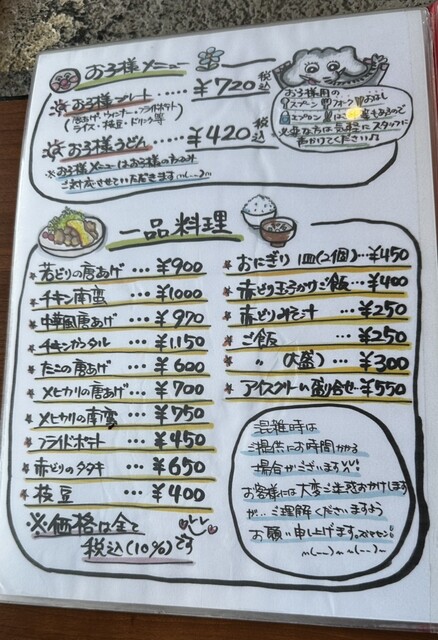 お子様メニュー
お子様プレート ・・・・・・ ¥720 税込
(唐あげ、ウインナー・フライドポテト
ライス・枝豆・ドリンク等)
お子様うどん ・・・・・ ¥420 税込
※お子様メニューはお子様のみ
ご対応させていただきますm(__)m
お子様用の
スプーン フォーク おはし
エプロン
必要な方は気軽にスタッフに
声かけてください♪
一品料理
若どりの唐あげ ・・・ ¥900
チキン南蛮 ・・・ ¥1000
中華風唐あげ ・・・ ¥970
チキンカツタル ・・・ ¥1,150
たこの唐あげ ・・・ ¥600
メヒカリの唐あげ ・・・ ¥700
メヒカリの南蛮 ・・・ ¥750
フライドポテト ・・・ ¥450
赤どりのタタキ ・・・ ¥650
枝豆 ・・・ ¥400
※価格は全て
税込(10%)です
おにぎり 1皿(2個)・・・¥450
赤どり玉子かけご飯・・・¥400
赤どりみそ汁 ・・・¥250
ご飯 ・・・¥250
〃 (大盛)・・・¥300
アイスクリーム盛り合せ・・・¥550
混雑時は
ご提供にお時間かかる
場合がございます!!
お客様には大変ご迷惑おかけします
が・・ご理解くださいますよう
お願い申し上げます。スミマセン!
m(__)m m(__)m